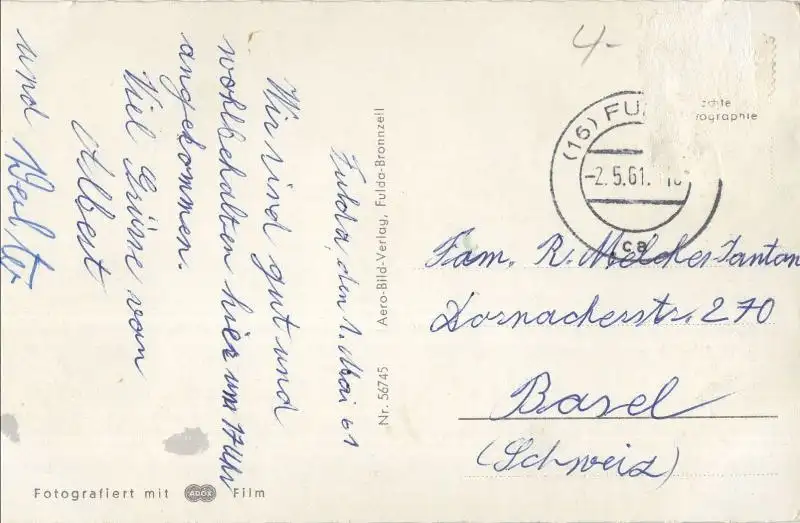 Fulda, den 1. Mai 61
Wir sind gut und
wohlbehalten hier um 17 Uhr
angekommen.
Viel Grüsse von
Albest
und Walter
Nr. 56745 Aero-Bild-Verlag, Fulda-Bronnzell
4-
(16) FU
-2.5.61.
ca
chte
ographie
Fam. R. Melcher Santan
Dornacherstr. 270
Basel
(Schweiz)
Fotografiert mit ADOX Film